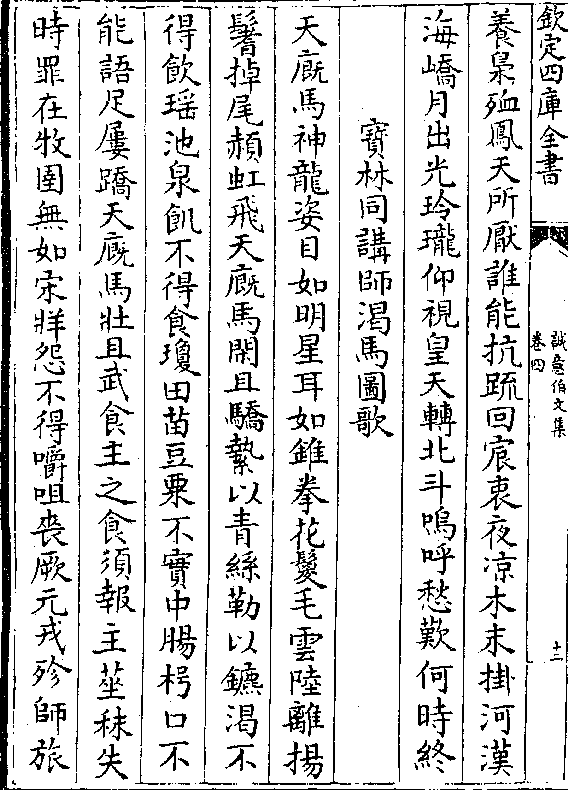 欽定四庫全書
誠意伯文集
卷四
十二
養梟䘏鳳天所厭誰能抗疏回宸衷夜凉木末掛河漢
海嶠月出光玲瓏仰視皇天轉北斗嗚呼愁歎何時終
寶林同講師渴馬圖歌
天廐馬神龍姿目如明星耳如錐拳花鬉毛雲陸離揚
鬐掉尾頳虹飛天廐馬閑且驕縶以青絲勒以鑣渴不
得飲瑶池泉飢不得食瓊田苗豆粟不實中腸枵口不
能語足屢蹻天廐馬壯且武食主之食須報主莝秣失
時罪在牧圉無如宋牂怨不得嚼咀喪厥元戎殄師旅